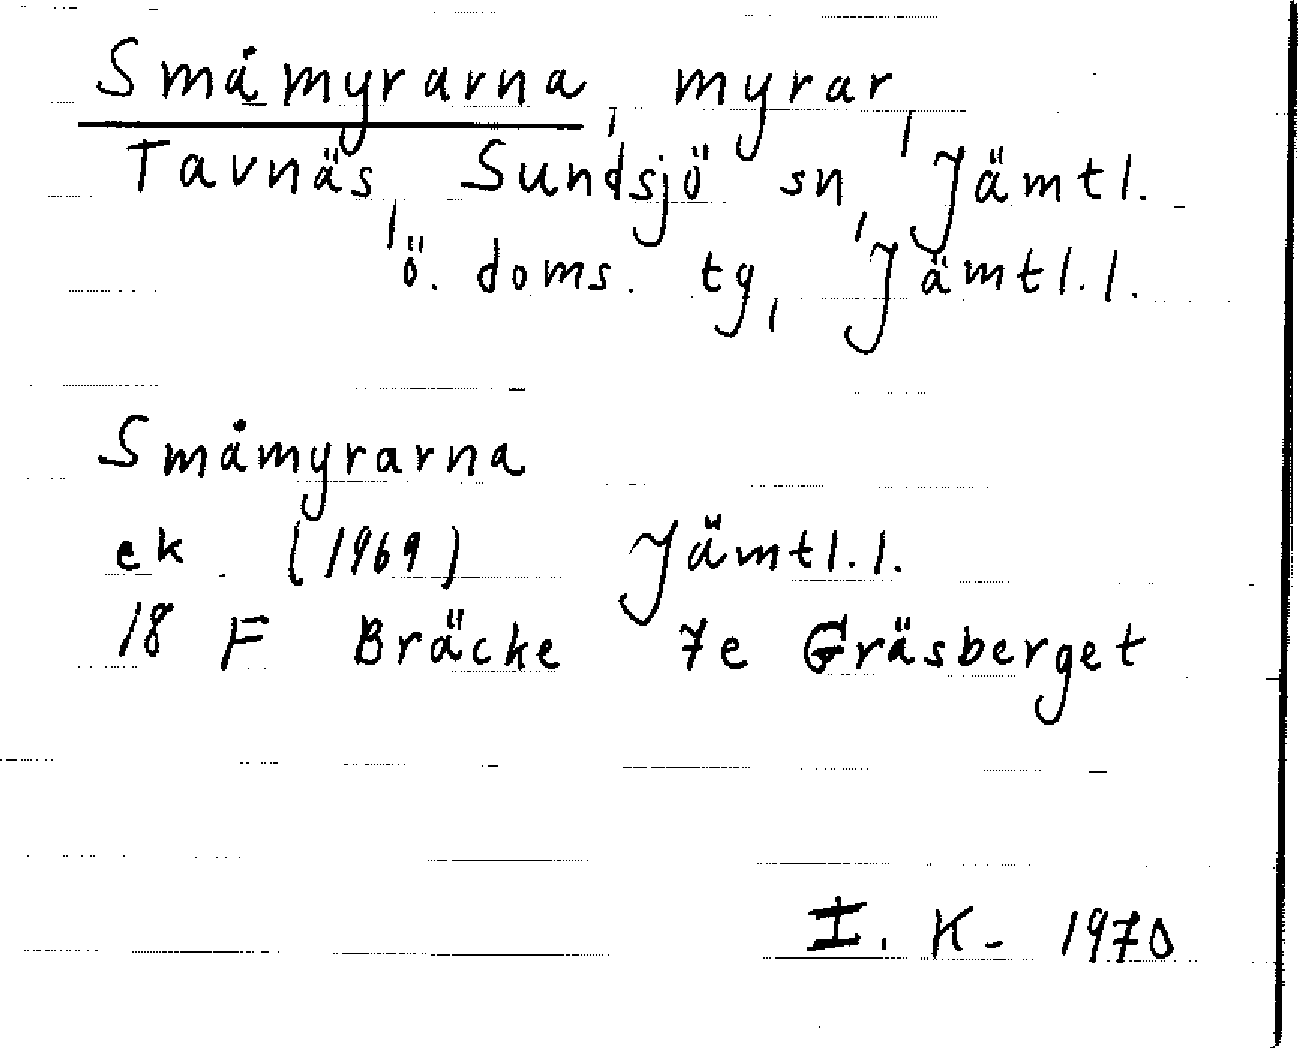 Småmyrarna, myrar,
Tavnäs, Sundsjö sn, Jämtl.
ö. doms. tg, Jämtl. l.
Småmyrarna
ek. (1969) Jämtl. l.
18 F Bräcke 7e Gräsberget
I. K. 1970